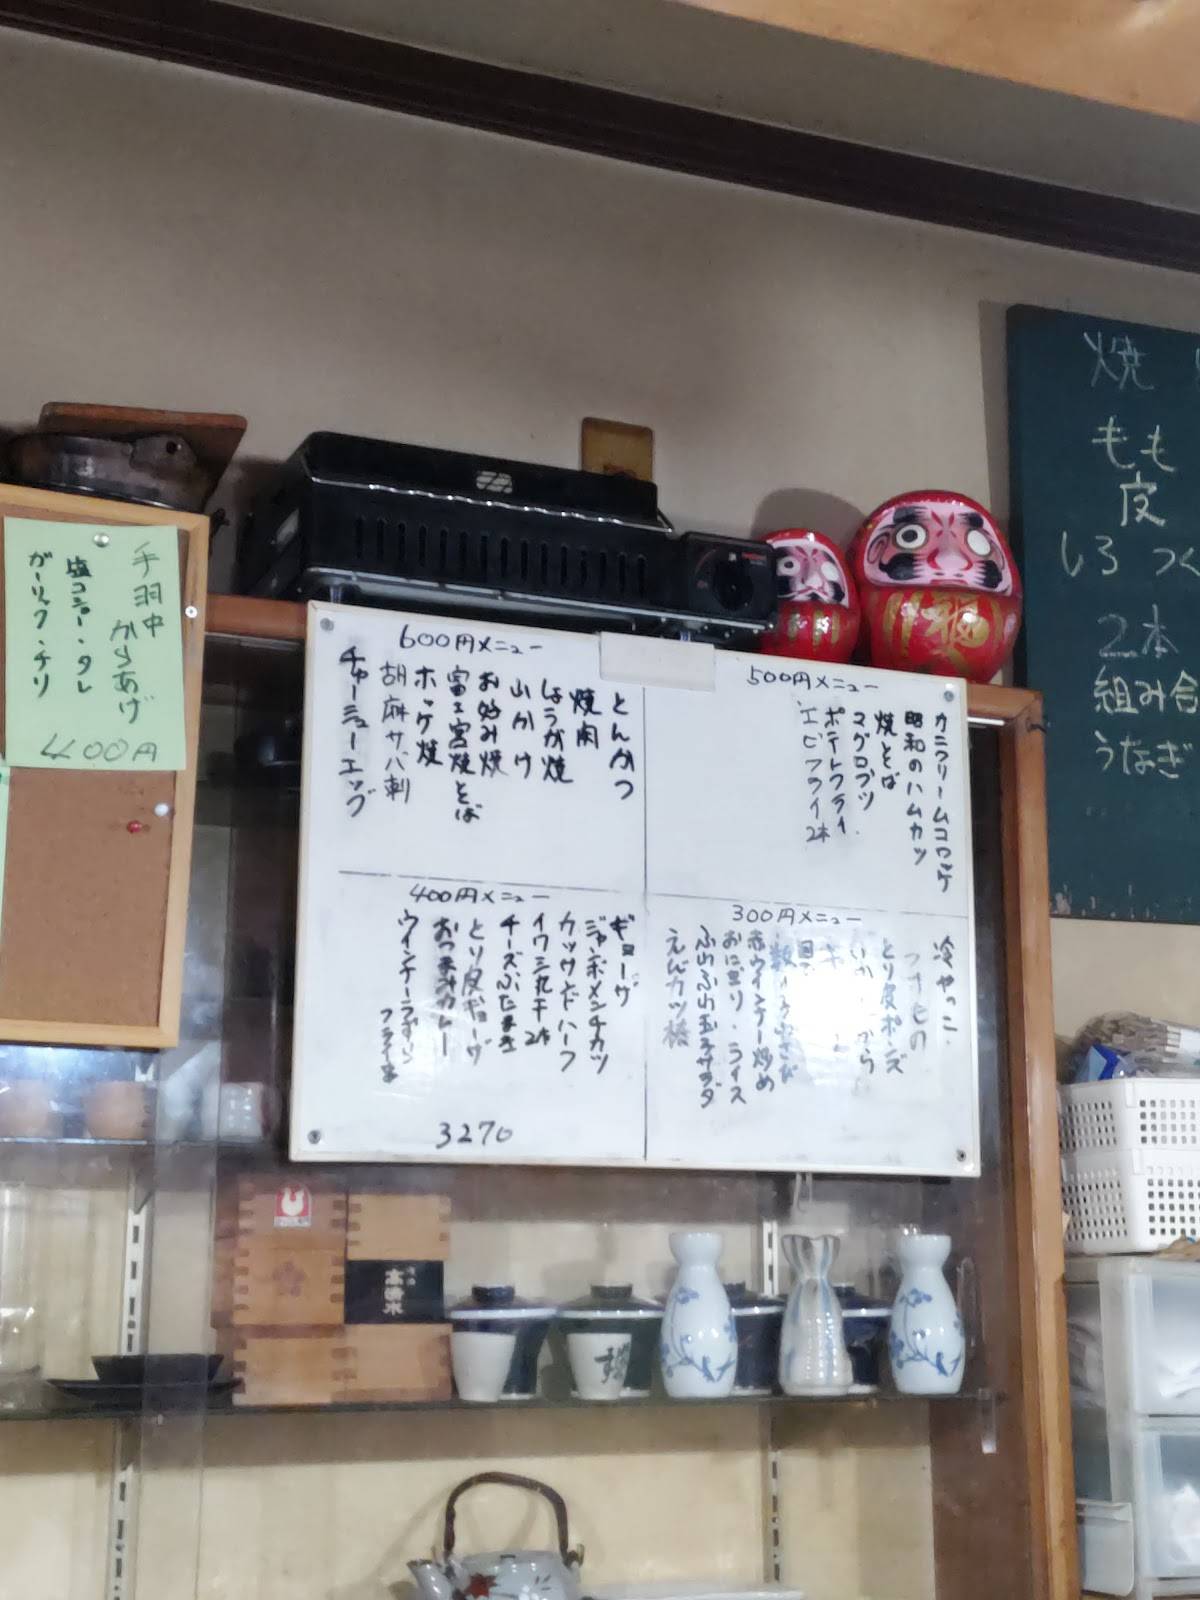 手羽中
からあげ
塩コショー・タレ
ガーリック・チリ
400円
600円メニュー
とんかつ
焼肉
しょうが焼
山かけ
お好み焼
富士宮焼そば
ホッケ焼
胡麻サバ刺
チャーシューエッグ
500円メニュー
カニクリームコロッケ
昭和のハムカツ
焼とそば
マグロブツ
ポテトフライ
エビフライ2本
400円メニュー
ギョーザ
ジャンボメンチカツ
カツサンドハーフ
イワシ丸干2本
チーズぶたまき
とり皮ギョーザ
おつまみカレー
ウインナー
フライ
3270
300円メニュー
冷やっこ
つけもの
とり皮ポンズ
から
赤ウインナー炒め
おにぎり・ライス
玉子サラダ
えびカツ
焼
もも
皮
しろ つく
2本
組み合
うなぎ
福